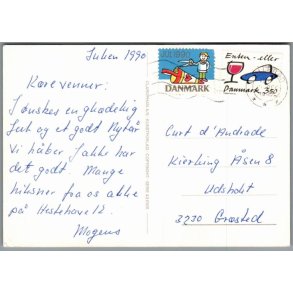 Julen 1990
Kære venner:
I ønskes en glædelig
Jul og et godt Nytår
Vi håber I alle har
det godt. Mange
hilsner fra os alle
på Hestehave 12.
Mogens
JUL 1990
DANMARK
Enten - eller
Danmark 350
Curt d'Andrade
Kierkling Åsen 8
Udsholt
3230 Græsted